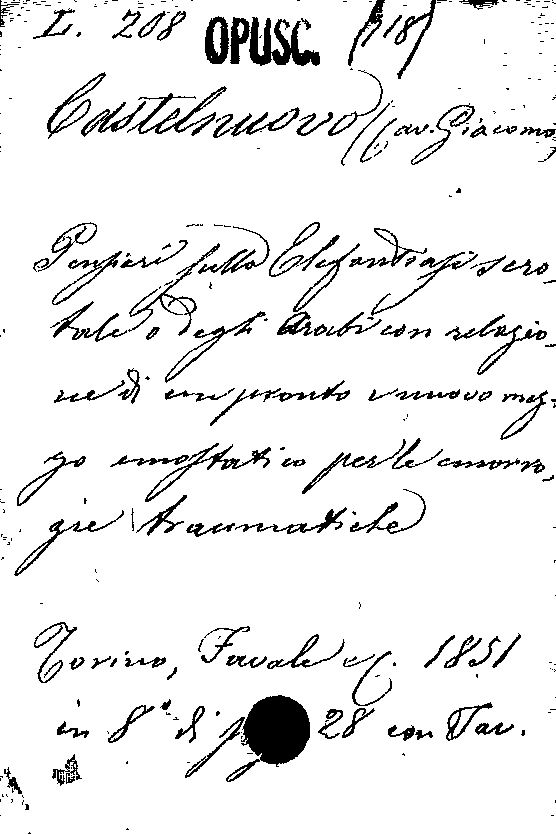 L. 208 OPUSC. (718)
Castelnuovo (Cav. Giacomo)
Pensieri sulla Elefantiasi scro-
tale o degli Arabi con relazio-
ne di un pronto e nuovo mez-
zo emostatico per le emorra-
gie traumatiche
Torino, Favale e C. 1851
in 8° di p 28 con Tav.